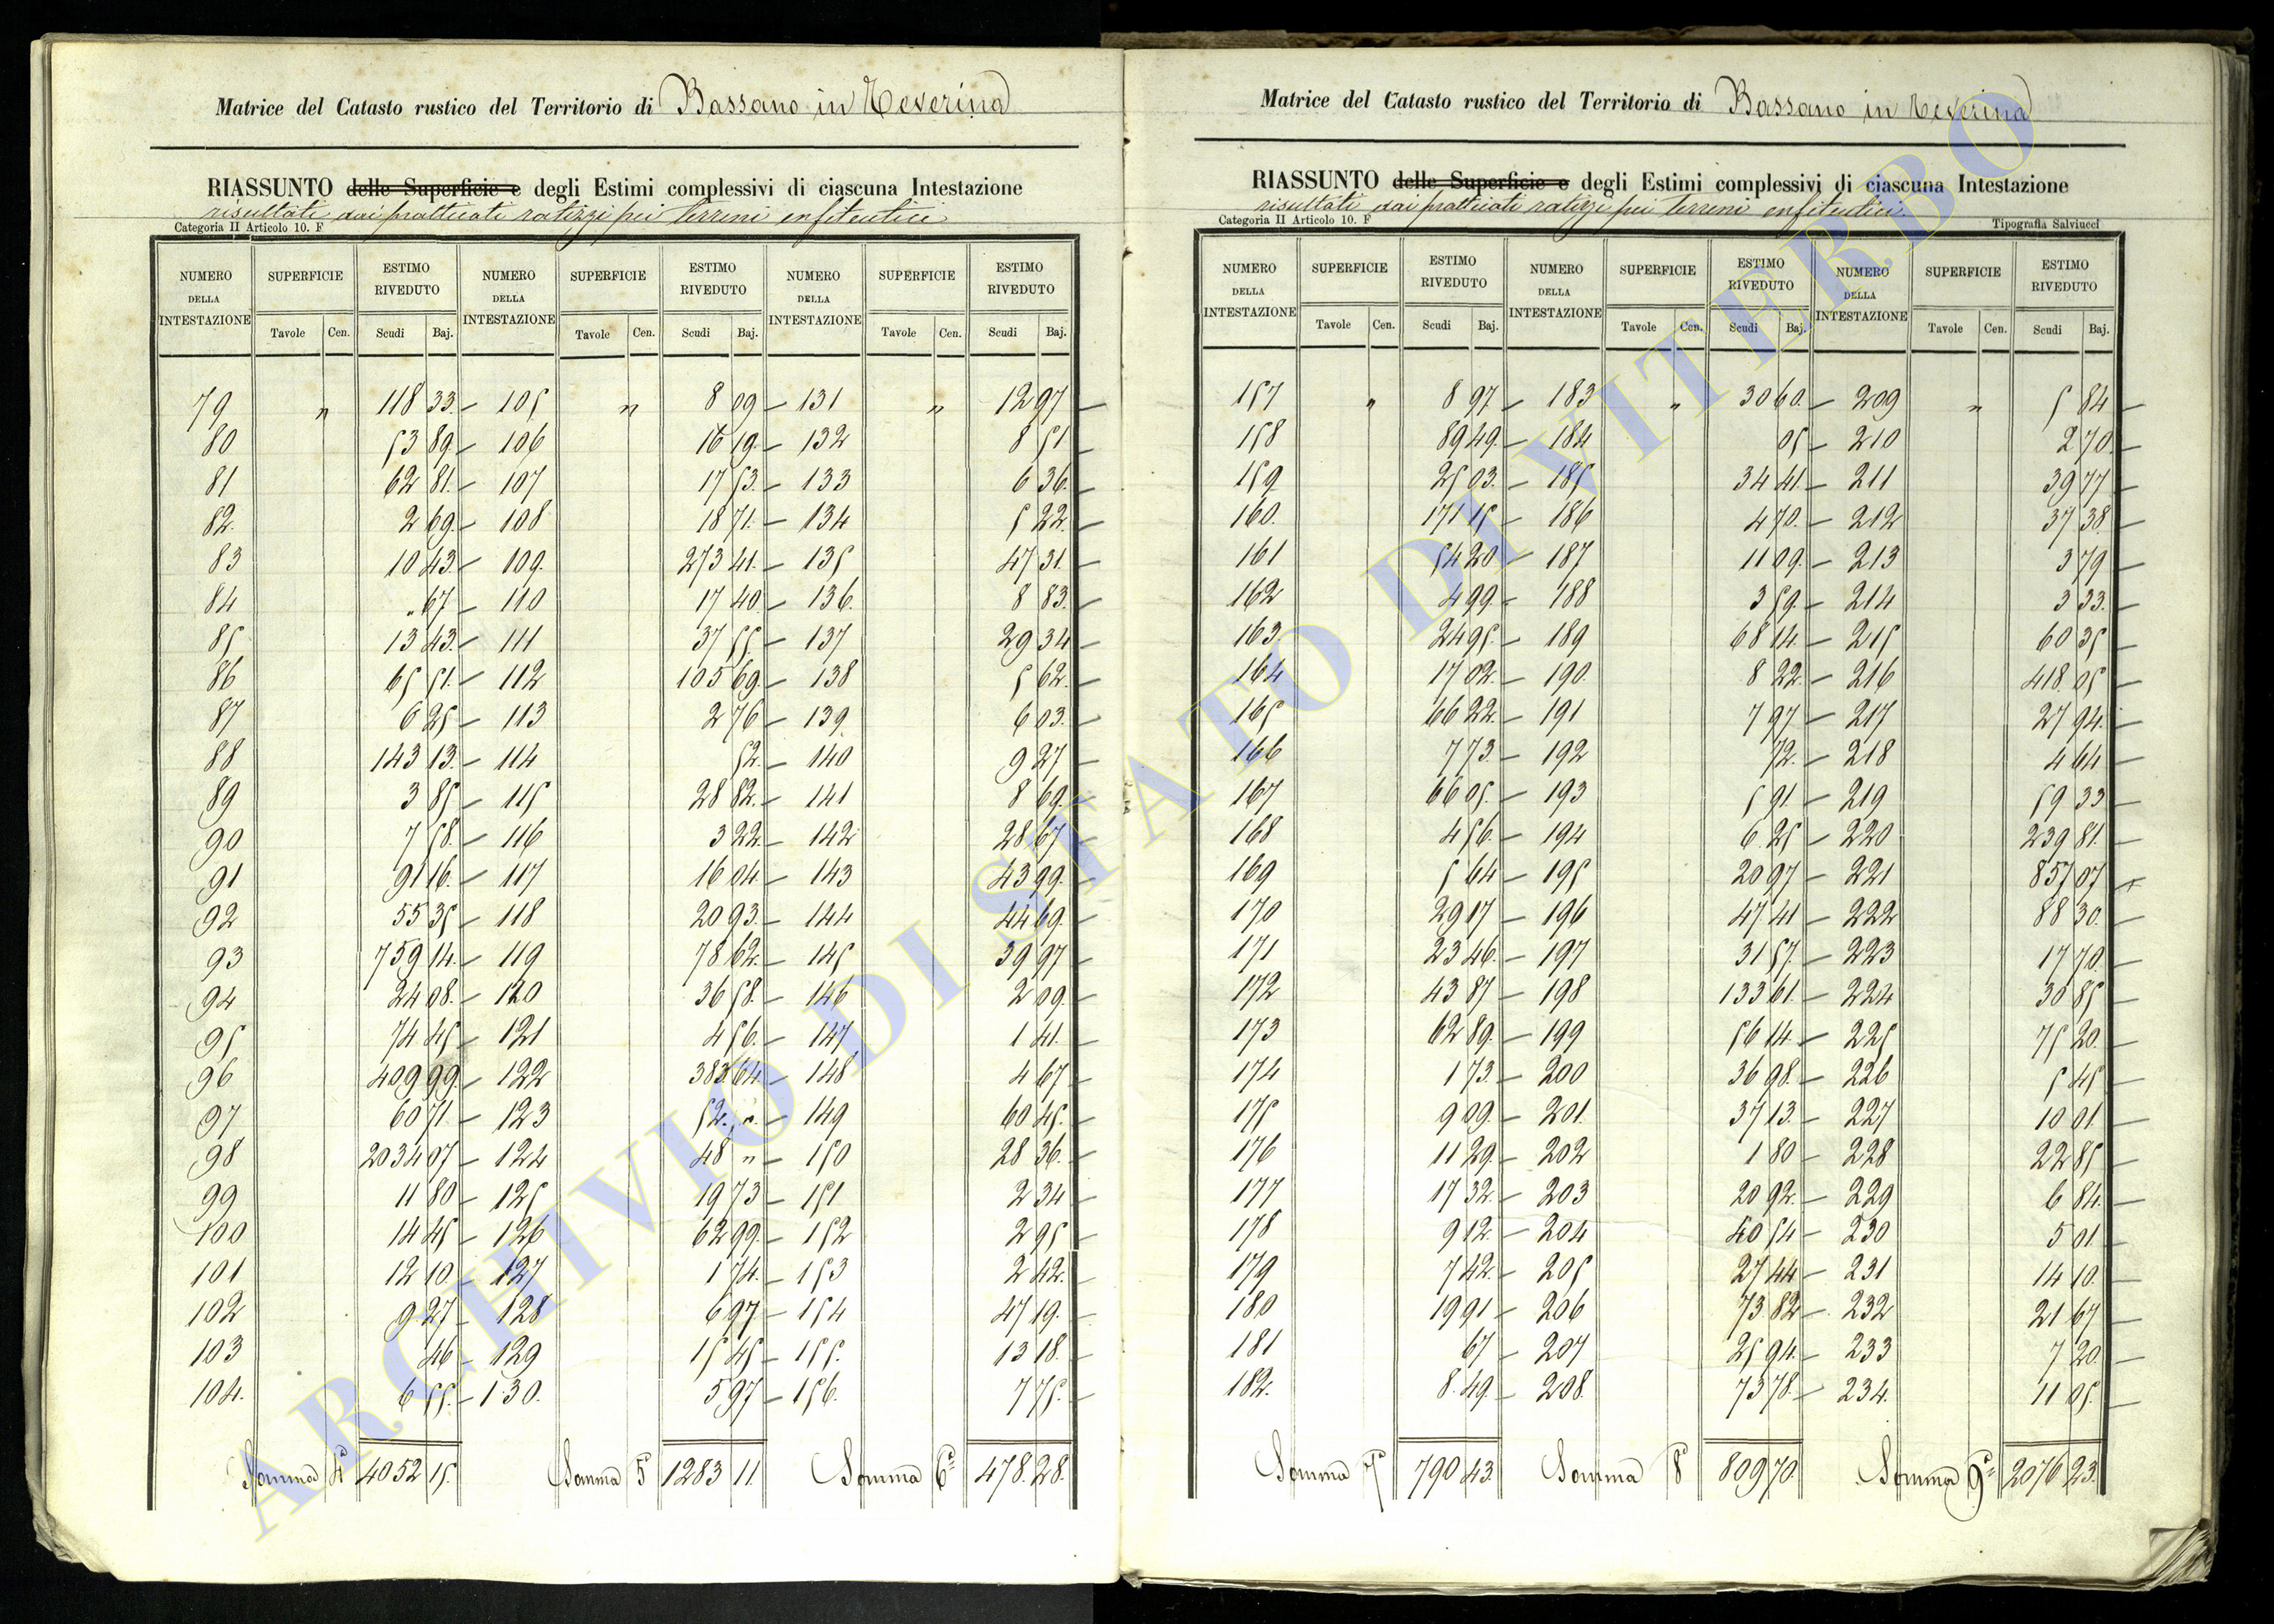 Matrice del Catasto rustico del Territorio di Bassano in Teverina
RIASSUNTO delle Superficie e degli Estimi complessivi di ciascuna Intestazione
risultati dai pratticati ratizzi pei terreni enfiteutici
Categoria II Articolo 10. F
NUMERO DELLA INTESTAZIONE SUPERFICIE ESTIMO RIVEDUTO NUMERO DELLA INTESTAZIONE SUPERFICIE ESTIMO RIVEDUTO NUMERO DELLA INTESTAZIONE SUPERFICIE ESTIMO RIVEDUTO
Tavole Cen. Scudi Baj. Tavole Cen. Scudi Baj. Tavole Cen. Scudi Baj.
79 " 118 33. – 105 " 8 09 – 131 " 12 97 –
80 53 89. – 106 16 19. – 132 8 51 –
81 62 81. – 107 17 53. – 133 6 36. –
82. 2 69. – 108 18 71. – 134 5 22. –
83 10 43. – 109. 273 41. – 135 47 31. –
84 " 67 – 110 17 40. – 136. 8 83. –
85 13 43. – 111 37 55. – 137 29 34 –
86 65 51. – 112 105 69. – 138 5 62. –
87 6 25 – 113 2 76 – 139 6 03. –
88 143 13. – 114 52. – 140 9 27 –
89 3 85 – 115 28 82. – 141 8 69. –
90 7 58. – 116 3 22. – 142 28 67 –
91 91 16. – 117 16 04 – 143 43 99. –
92 55 35 – 118 20 93. – 144 44 69. –
93 759 14. – 119 78 62. – 145 39 97 –
94 24 08. – 120 36 58. – 146 2 09. –
95 74 45 – 121 4 56. – 147 1 41. –
96 409 99. – 122 383 64. – 148 4 67 –
97 60 71. – 123 52. " – 149 60 45. –
98 2034 07 – 124 48 " – 150 28 36. –
99 11 80 – 125 19 73 – 151 2 34 –
100 14 45 – 126 62 99. – 152 2 95 –
101 12 10 – 127 1 74. – 153 2 42. –
102 9 27 – 128 6 97 – 154 47 19. –
103 46 – 129 15 45 – 155. 13 18. –
104. 6 55. – 130. 5 97 – 156. 7 75. –
Somma 4a 4052 15. Somma 5a 1283 11. Somma 6a 478. 28.
Matrice del Catasto rustico del Territorio di Bassano in Teverina
RIASSUNTO delle Superficie e degli Estimi complessivi di ciascuna Intestazione
risultati dai pratticati ratizzi pei terreni enfiteutici
Categoria II Articolo 10. F Tipografia Salviucci
NUMERO DELLA INTESTAZIONE SUPERFICIE ESTIMO RIVEDUTO NUMERO DELLA INTESTAZIONE SUPERFICIE ESTIMO RIVEDUTO NUMERO DELLA INTESTAZIONE SUPERFICIE ESTIMO RIVEDUTO
Tavole Cen. Scudi Baj. Tavole Cen. Scudi Baj. Tavole Cen. Scudi Baj.
157 " 8 97 – 183 " 30 60. – 209 " 5 84 –
158 89 49. – 184 05 – 210 2 70. –
159 25 03. – 185 34 41. – 211 39 77 –
160. 171 15 – 186 4 70. – 212 37 38. –
161 54 20 – 187 11 09. – 213 3 79 –
162 4 99. – 188 3 59. – 214 3 33. –
163. 24 95. – 189 68 14. – 215 60 35 –
164 17 02. – 190. 8 22. – 216 418. 05 –
165 66 22. – 191 7 97 – 217 27 94. –
166 7 73. – 192 72. – 218 4 64 –
167 66 05. – 193 5 91. – 219 59 33 –
168 4 56. – 194 6 25 – 220 239 81. –
169 5 64 – 195 20 97 – 221 857 07 –
170 29 17 – 196 47 41 – 222 88 30. –
171 23 46. – 197 31 57. – 223 17 70. –
172 43 87 – 198 133 61. – 224 30 85 –
173 62 89. – 199 56 14. – 225 75 20. –
174 1 73. – 200 36 98. – 226 5 45 –
175 9 09. – 201. 37 13. – 227 10 01. –
176 11 29. – 202 1 80 – 228 22 85 –
177 17 32. – 203 20 92. – 229 6 84. –
178 9 12. – 204 40 54 – 230 5 01. –
179 7 42. – 205 27 44 – 231 14 10. –
180 19 91 – 206 73 82 – 232 21 67 –
181 67 – 207 25 94. – 233 7 20. –
182. 8. 49. – 208. 73 78. – 234. 11 05. –
Somma 7a 790 43. Somma 8a 809 70. Somma 9a 2076 23.
ARCHIVIO DI STATO DI VITERBO